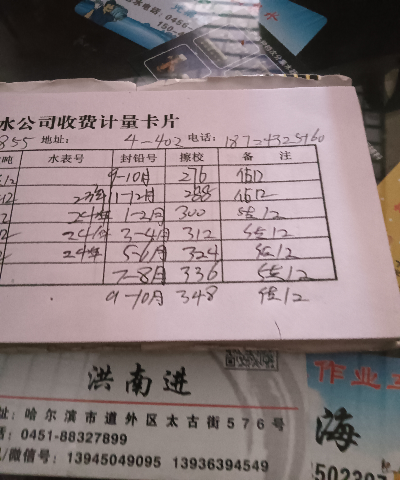 水
水电话: 0456-
150-
水公司收费计量卡片
855 地址: 4-402 电话: 18724325460
吨 水表号 封铅号 擦校 备 注
9-10月 276 估12
23年 11-12月 288 估12
24年 1-2月 300 估12
24年 3-4月 312 估12
24年 5-6月 324 估12
7-8月 336 估12
9-10月 348 估12
洪南进
作业
址: 哈尔滨市道外区太古街576号
海
话: 0451-88327899
/微信号: 13945049095 13936394549
502207